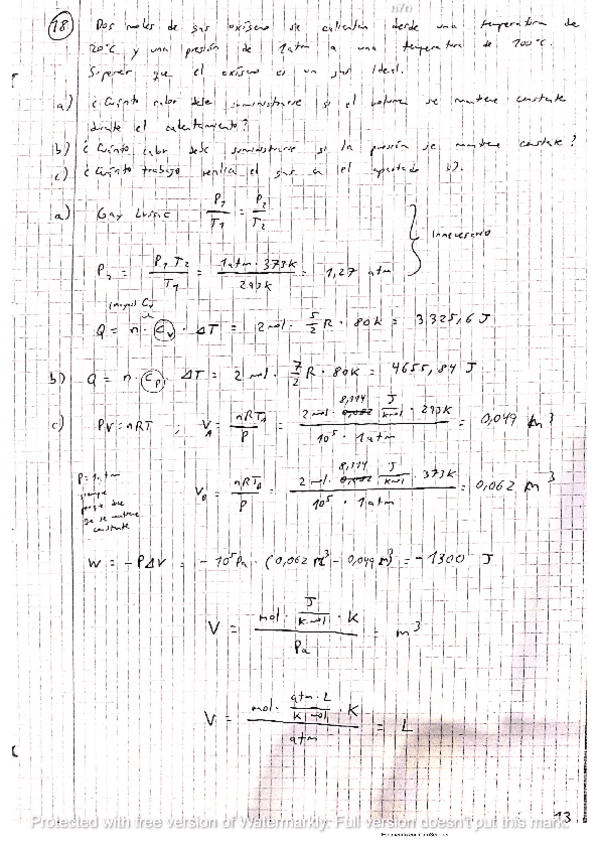 18) Dos moles de gas oxígeno se calientan desde una temperatura de
20°C y una presión de 1 atm a una temperatura de 100°C.
Suponer que el oxígeno es un gas ideal.
a) ¿Cuánto calor debe suministrarse si el volumen se mantiene constante
durante el calentamiento?
b) ¿Cuánto calor debe suministrarse si la presión se mantiene constante?
c) ¿Cuánto trabajo realiza el gas en el apartado b).
a) Gay Lussac P1/T1 = P2/T2
P2 = P1 T2/T1 = 1 atm · 373K/293K = 1,27 atm } innecesario
Cv
Q = n · Cv · ΔT = 2 mol · 5/2 R · 80K = 3325,6 J
b) Q = n · Cp · ΔT = 2 mol · 7/2 R · 80K = 4655,84 J
c) PV = nRT ; VA = nRTA/P = 2 mol · 8,314 J/K·mol · 293K/10⁵ · 1 atm = 0,049 m³
P = 1 atm
siempre
porque
se mantiene
constante
VB = nRTB/P = 2 mol · 8,314 J/K·mol · 373K/10⁵ · 1 atm = 0,062 m³
W = -PΔV = -10⁵ Pa · (0,062 m³ - 0,049 m³) = -1300 J
V = mol · J/K·mol · K/Pa = m³
V = mol · atm·L/K·mol · K/atm = L
13
Protected with free version of Watermarkly. Full version doesn't put this mark.